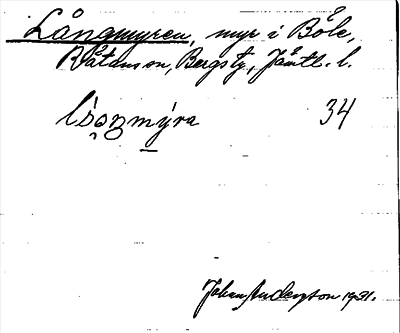 Långmyren, myr i Böle,
Råtans sn, Bergs tg., Jämtl. l.
34
Johan Anderzson 1931.